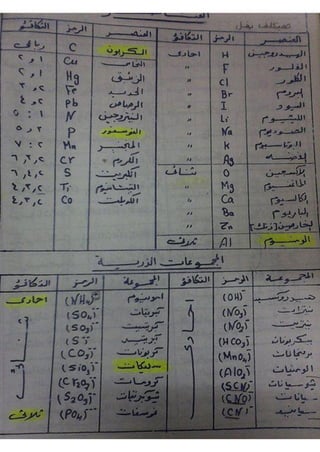 العنصر الرمز التكافؤ العنصر الرمز التكافؤ
الهيدروجين H احادى الكربون C رباعى
الفلور F " النحاس Cu ١ و ٢
الكلور Cl " الزئبق Hg ١ و ٢
البروم Br " الحديد Fe ٢ و ٣
اليود I " الرصاص Pb ٢ و ٤
الليثيوم Li " النيتروجين N ١ : ٥
الصوديوم Na " الفوسفور P ٣ و ٥
البوتاسيوم K " المنجنيز Mn ٢ : ٧
الفضه Ag " الكروم Cr ٢ , ٣ , ٦
الاكسجين O ثنائى الكبريت S ٢ , ٤ , ٦
الماغنسيوم Mg " التيتانيوم Ti ٢ , ٣ , ٤
الكالسيوم Ca " الكوبلت Co ٢ , ٣ , ٤
الباريوم Ba "
الخارصين [زنك] Zn "
الومنيوم Al ثلاثى
المجموعات الذرية
المجموعة الرمز التكافؤ المجموعة الرمز التكافؤ
هيدروكسيد (OH)⁻ احادى امونيوم (NH₄) احادى
نترات (NO₃)⁻ كبريتات (SO₄)⁻⁻ ثنائى
نيتريت (NO₂)⁻ كبريتيت (SO₃)⁻⁻
بيكربونات (HCO₃)⁻ كبريتيد (S)⁻⁻
برمنجانات (MnO₄)⁻ كربونات (CO₃)⁻⁻
الومينات (AlO₂)⁻ سليكات (SiO₃)⁻⁻
ثيوسيانات (SCN)⁻ كرومات (Cr₂O₇)⁻⁻
سيانات (CNO)⁻ ثيوكبريتات (S₂O₃)⁻⁻
سيانيد (CN)⁻ فوسفات (PO₄)⁻⁻⁻ ثلاثى